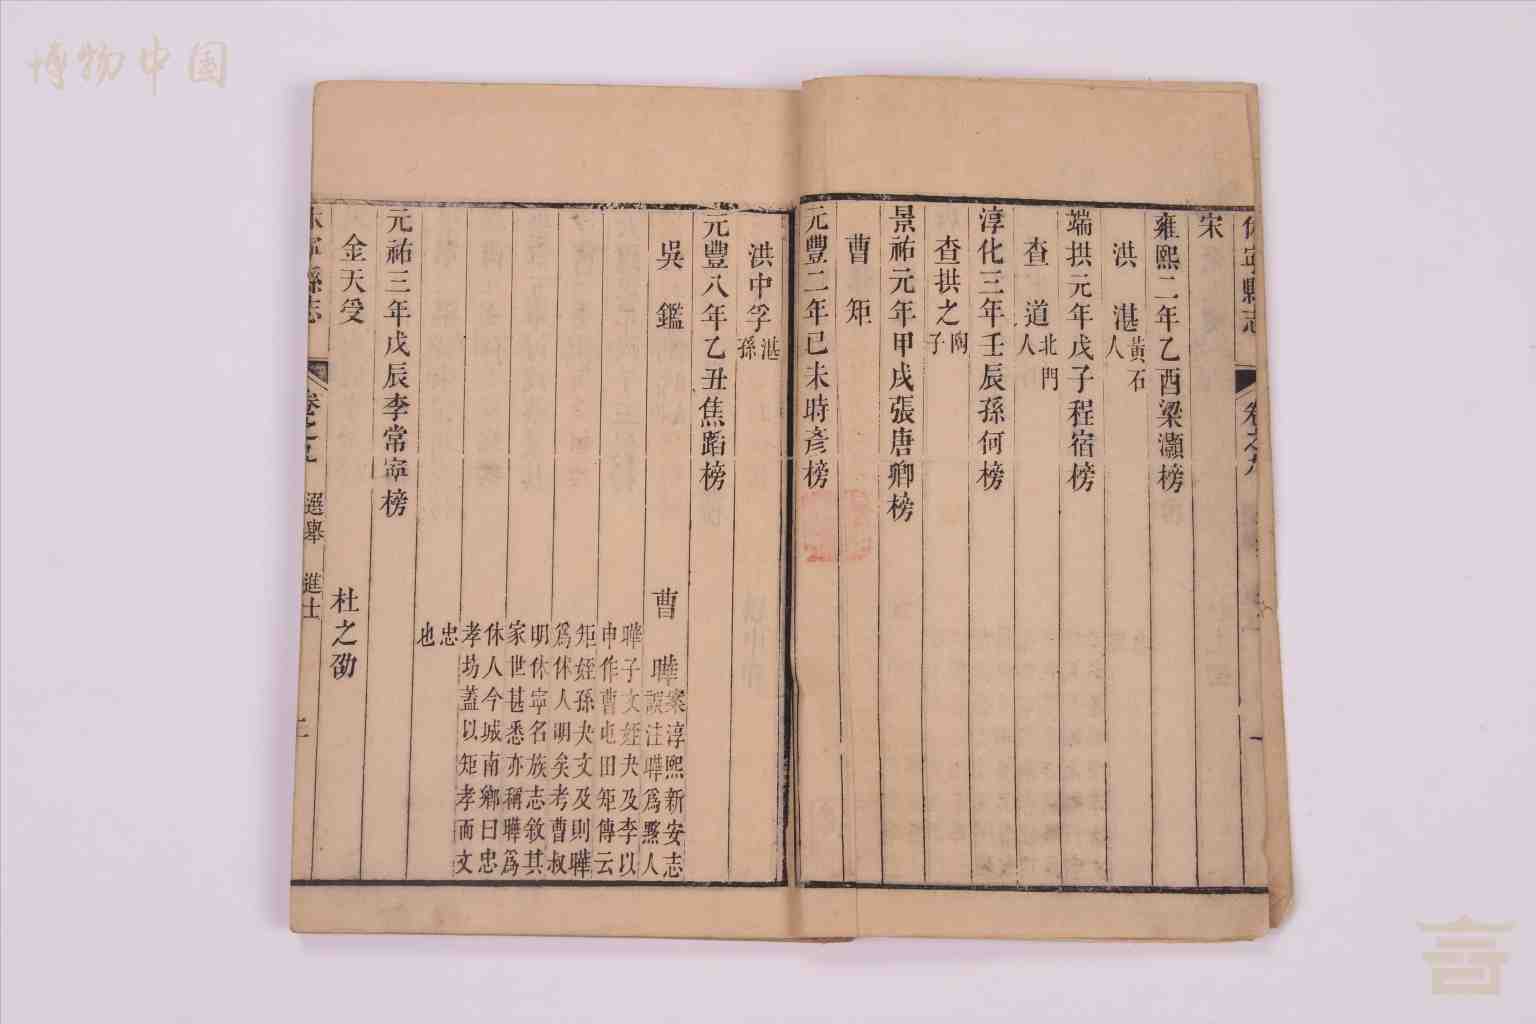 休寧縣志 卷之九 一
宋
雍熙二年乙酉梁灝榜
洪湛 黃石
人
端拱元年戊子程宿榜
查道 北門
人
淳化三年壬辰孫何榜
查拱之 陶
子
景祐元年甲戌張唐卿榜
曹矩
元豐二年己未時彥榜
洪中孚 湛
孫
元豐八年乙丑焦蹈榜
吳鑑 曹曄 案淳熙新安志
誤注曄爲黟人
曄子文姪夬及李以
申作曹屯田矩傳云
矩姪孫夬文及則曄
爲休人明矣考曹叔
明休寧名族志敘其
家世甚悉亦稱曄爲
休人今城南鄉曰忠
孝坊蓋以矩孝而文
忠
也
元祐三年戊辰李常寧榜
金天受 杜之劭
休寧縣志 卷之九 選舉 進士 二
博物中国